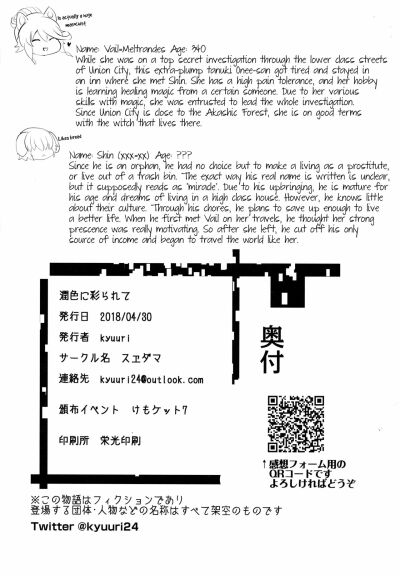 Is actually a huge masochist
Name: Vail=Meltrandes Age: 340
While she was on a top secret investigation through the lower class streets
of Union City, this extra-plump tanuki onee-san got tired and stayed in
an inn where she met Shin. She has a high pain tolerance, and her hobby
is learning healing magic from a certain someone. Due to her various
skills with magic, she was entrusted to lead the whole investigation.
Since Union City is close to the Akashic Forest, she is on good terms
with the witch that lives there.
Likes
Name: Shin (xxx=xx) Age: ???
Since he is an orphan, he had no choice but to make a living as a prostitute,
or live out of a trash bin. The exact way his real name is written is unclear,
but it supposedly reads as 'miracle'. Due to his upbringing, he is mature for
his age and dreams of living in a high class house. However, he knows little
about their culture. Through his chores, he plans to save up enough to live
a better life. When he first met Vail on her travels, he thought her strong
presence was really motivating. So after she left, he cut off his only
source of income and began to travel the world like her.
潤色に彩られて
発行日 2018/04/30
発行者 kyuuri
サークル名 スヱダマ
連絡先 kyuuri24@outlook.com
頒布イベント けもケット7
印刷所 栄光印刷
奥付
↑感想フォーム用の
QRコードです
よろしければどうぞ
※この物語はフィクションであり
登場する団体・人物などの名称はすべて架空のものです
Twitter @kyuuri24